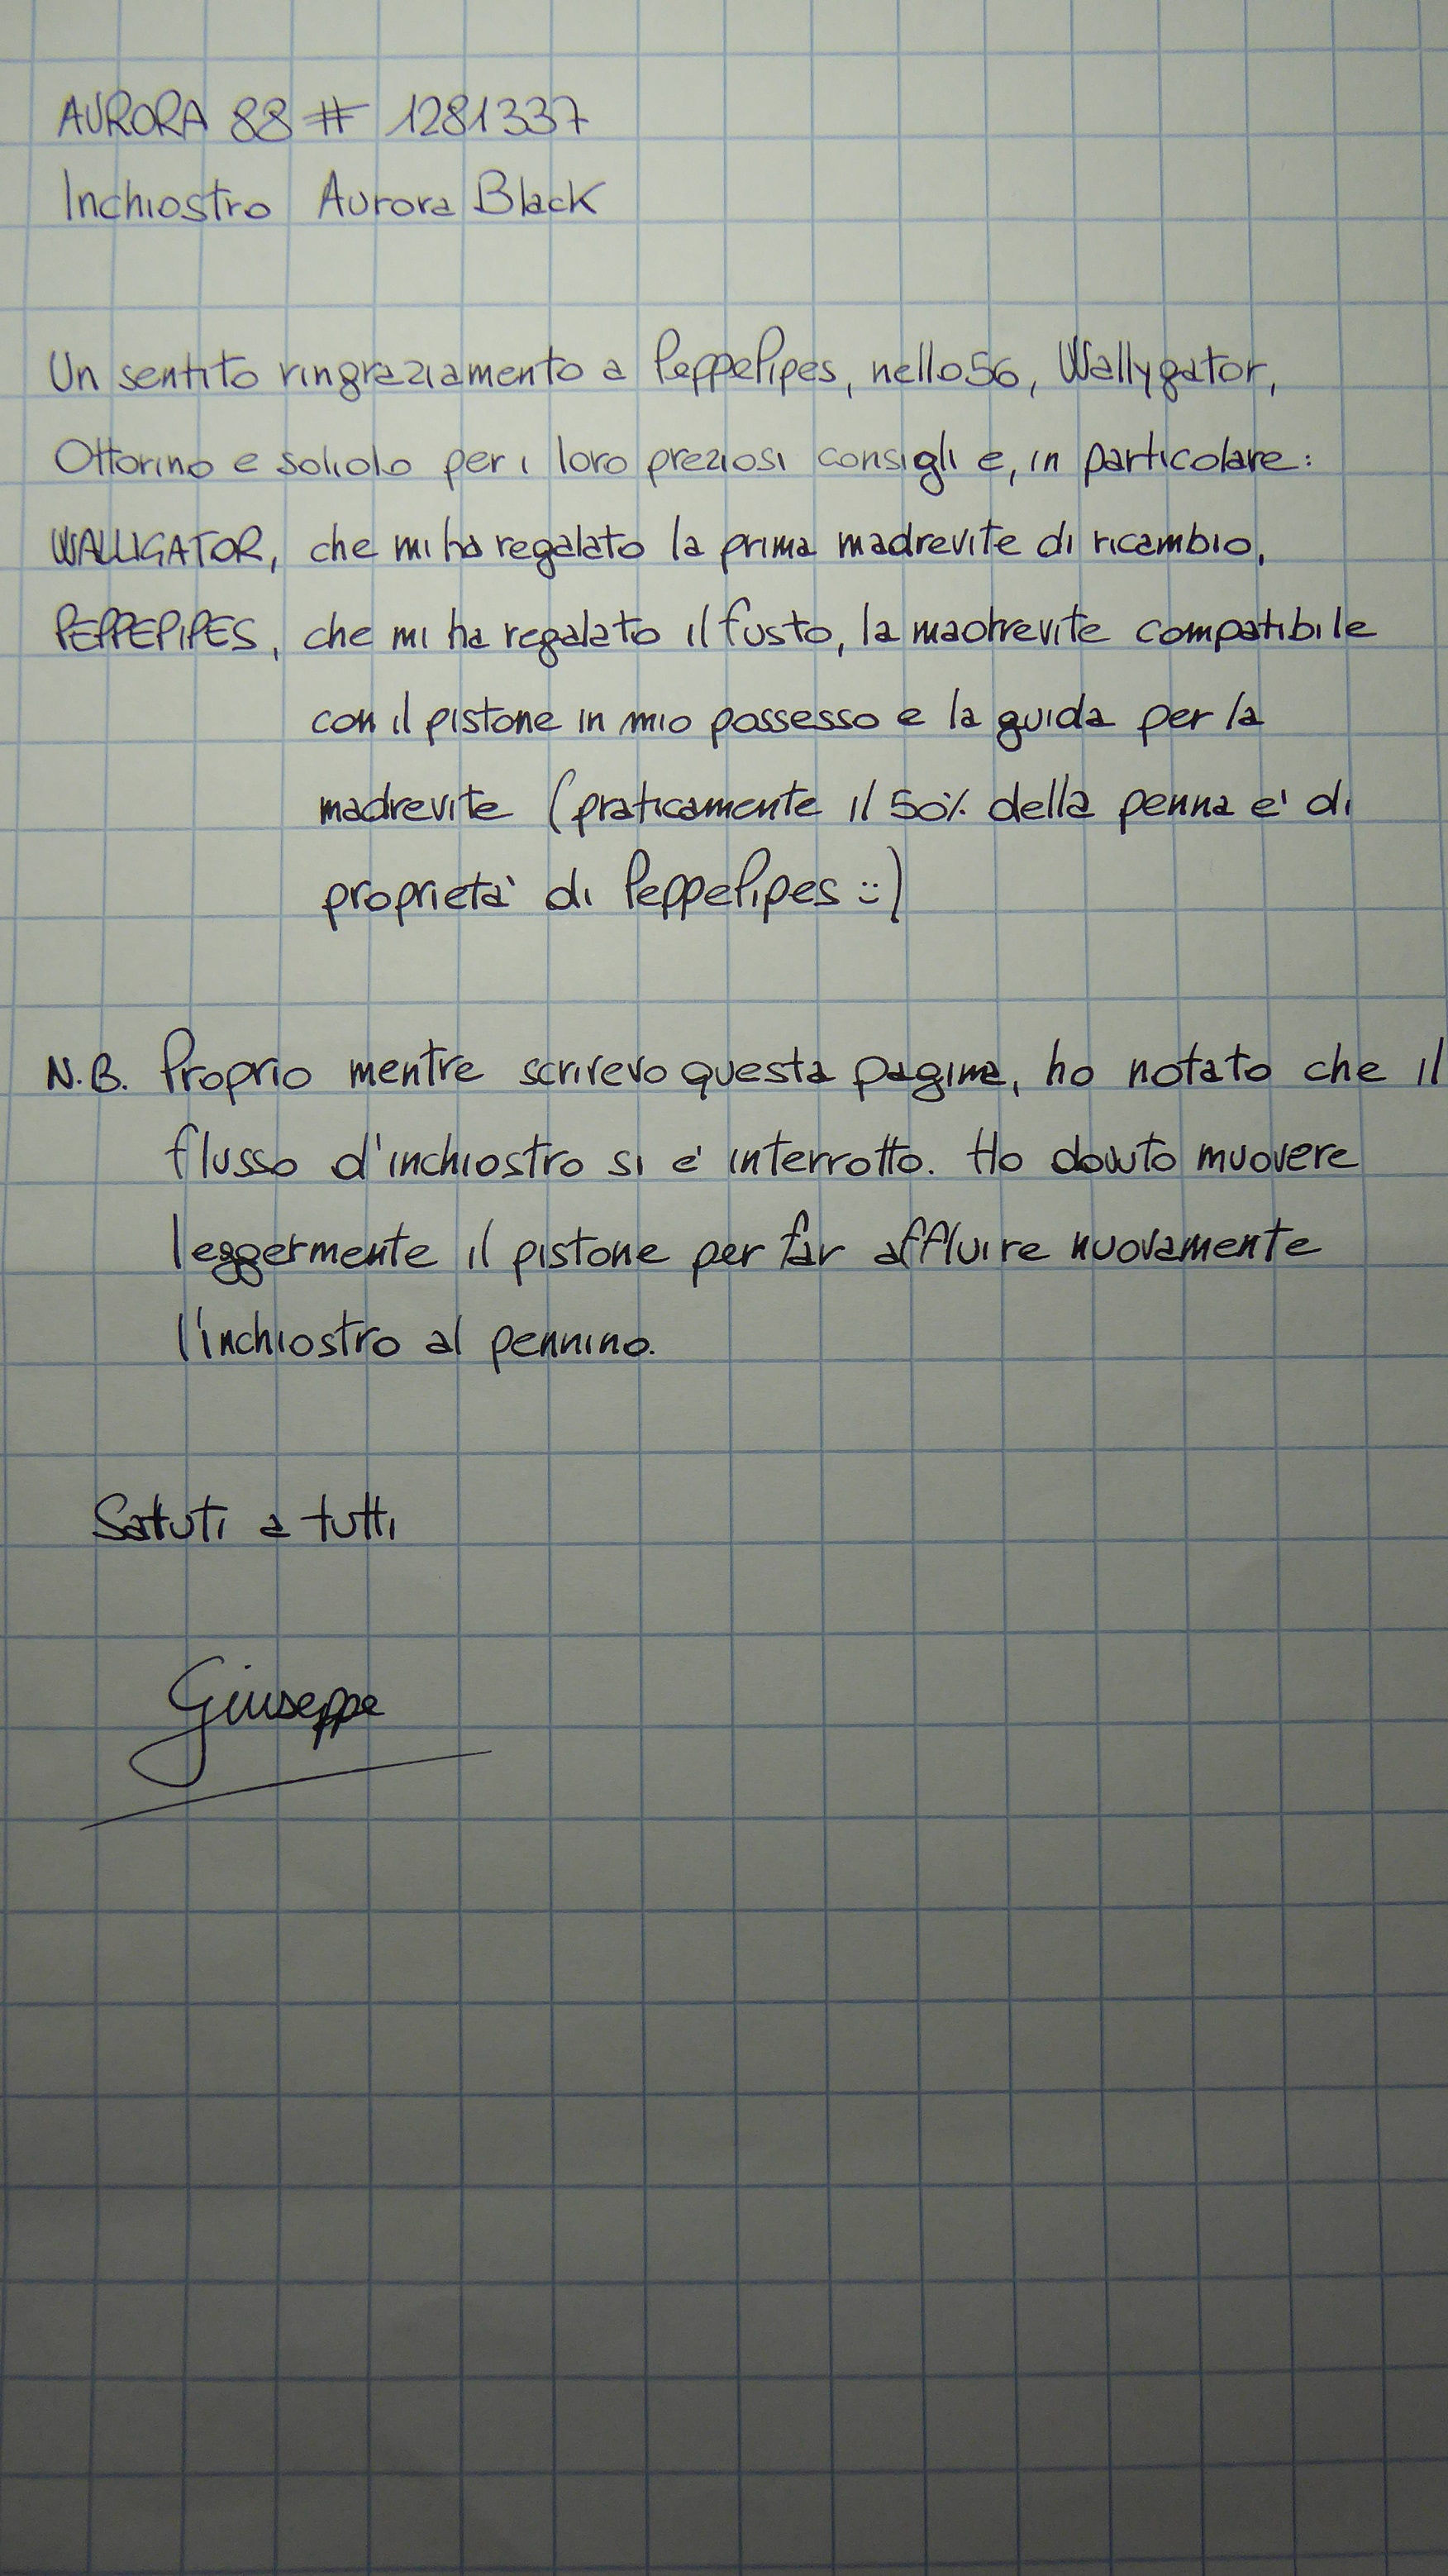 AURORA 88 # 1281337
Inchiostro Aurora Black
Un sentito ringraziamento a PeppePipes, nello56, Wallygator,
Ottorino e soliolo per i loro preziosi consigli e, in particolare:
WALLIGATOR, che mi ha regalato la prima madrevite di ricambio,
PEPPEPIPES, che mi ha regalato il fusto, la madrevite compatibile
con il pistone in mio possesso e la guida per la
madrevite (praticamente il 50% della penna e' di
proprieta' di PeppePipes :-)
N.B. Proprio mentre scrivevo questa pagina, ho notato che il
flusso d'inchiostro si e' interrotto. Ho dovuto muovere
leggermente il pistone per far affluire nuovamente
l'inchiostro al pennino.
Saluti a tutti
Giuseppe